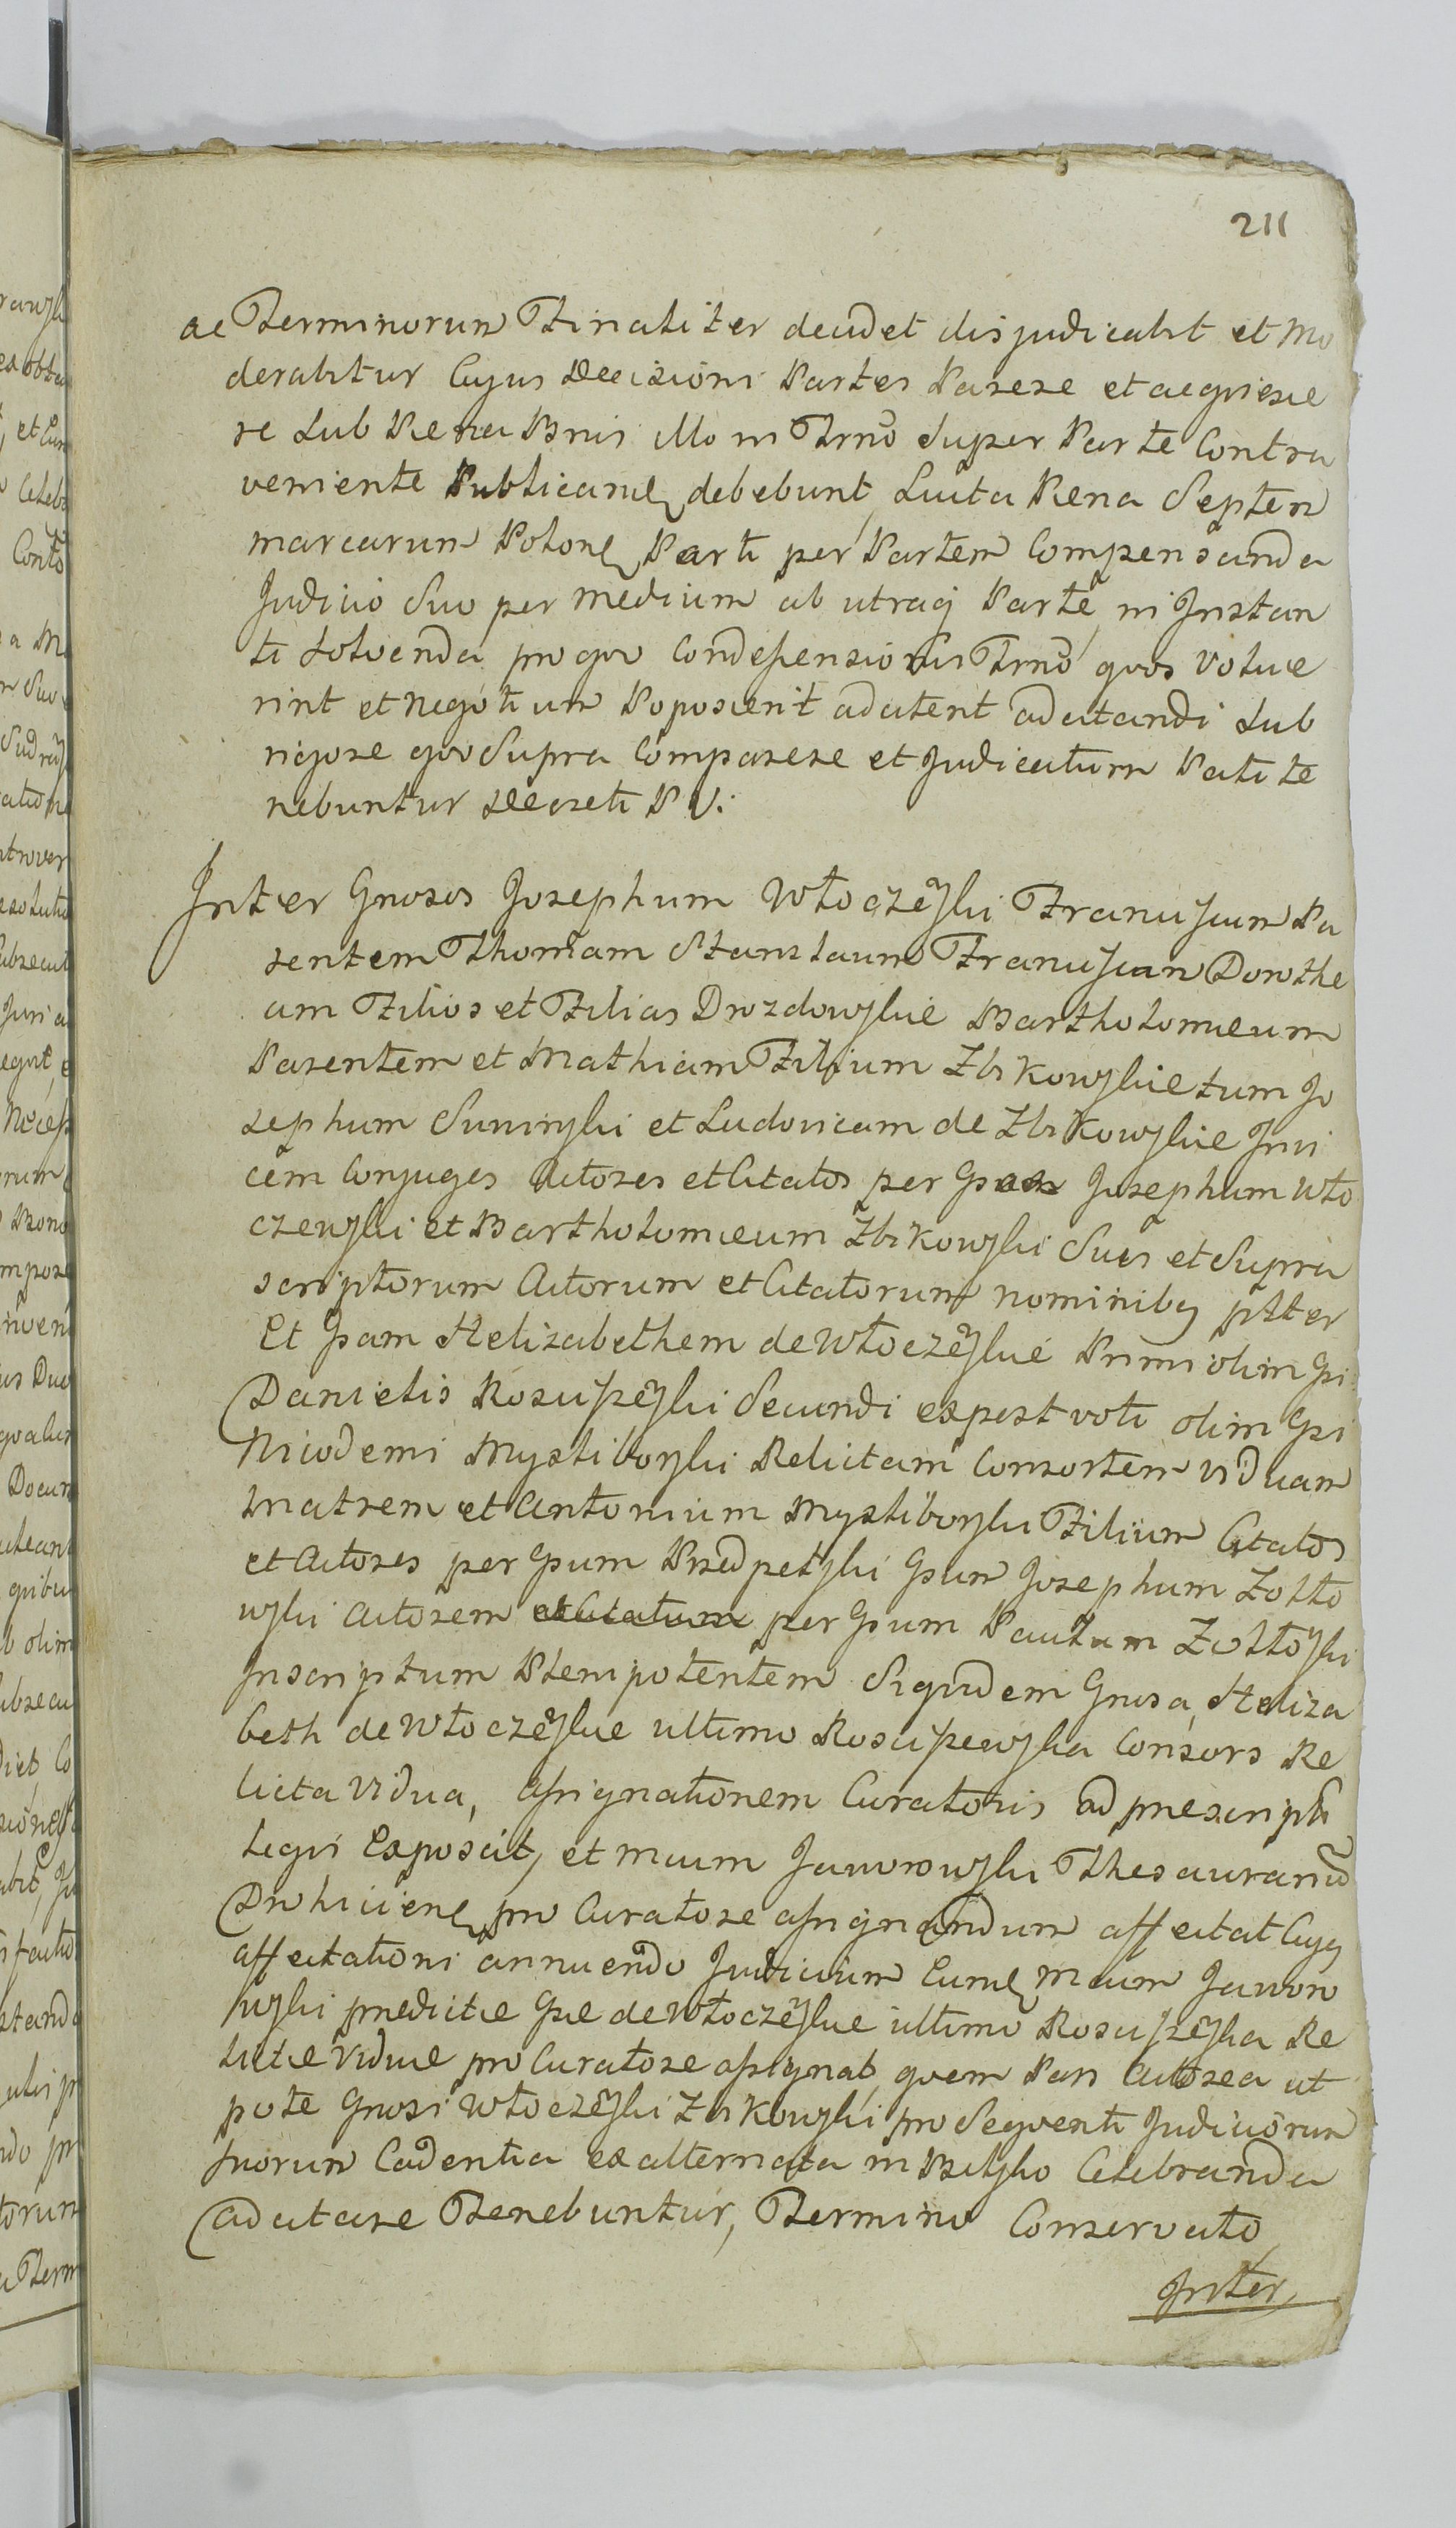 211
ac Terminorum Finaliter decidet disjudicabit et Mo
derabitur Cujus Decisioni Partes Parere et acquiesce
re Sub Pena Bnis illo in Trno Super Parte Contra
veniente Publicand debebunt, Luita Pena Septem
marcarum Polon Parti per Partem Compensanda
Judicio Suo per medium ab utraq Parte in Instan
ti Solvenda, pro quo Condescensionis Trno quos volue
rint et negotium Poposcerit adcitent adcitandi Sub
rigore quo Supra Comparere et Judicatum Pati te
nebuntur Decreti P V:
Inter Gnosos Josephum Włoczeski Franciscum Pa
rentem Thomam Stanislaum Franciscum Dorothe
am Filios et Filias Drozdowskie Bartholomeum
Parentem et Mathiam Filium Zbikowskie tum Jo
sephum Suminski et Ludovicam de Zbikowskie Invi
cem Conjuges Actores et Citatos per Josephum Wło
czewski et Bartholomeum Zbikowski Suis et Supra
scriptorum Actorum et Citatorum nominibq ptter
Et Gsam Helizabethem de Włoczeskie Primi olim Gsi
Danielis Kosciszeski Secundi ex post voti olim Gsi
Nicodemi Mysciborski Relictam Consortem viduam
Matrem et Antonium Mysciborski Filium Citatos
et Actores per Gsum Przedpełski Gsum Josephum Żołto
wski Actorem et Citatum per Gsum Paulum Żołtoski
Inscriptum Plenipotentem Siquidem Gnosa Heliza
beth de Włoczeskie ultimo Kosciszewska Consors Re
licta Vidua, assignationem Curatoris ad prescripta
legis Exposcit, et mcum Jaworowski Thesaurarium
Drohicien pro Curatore assignandum affectat Cujq
affectationi annuendo Judicium Eund mcum Jawor
wski predicte Gse de Włoczeskie ultimo Kosciszeska Re
lictæ Viduæ pro Curatore assignat, quem Pars Actorea ut
pote Gnosi Włoczeski Zbikowski pro Sequenti Judiciorum
suorum Cadentia ex alternata in Bielsko Celebranda
adcitare Tenebuntur, Termino Conservato
Inter